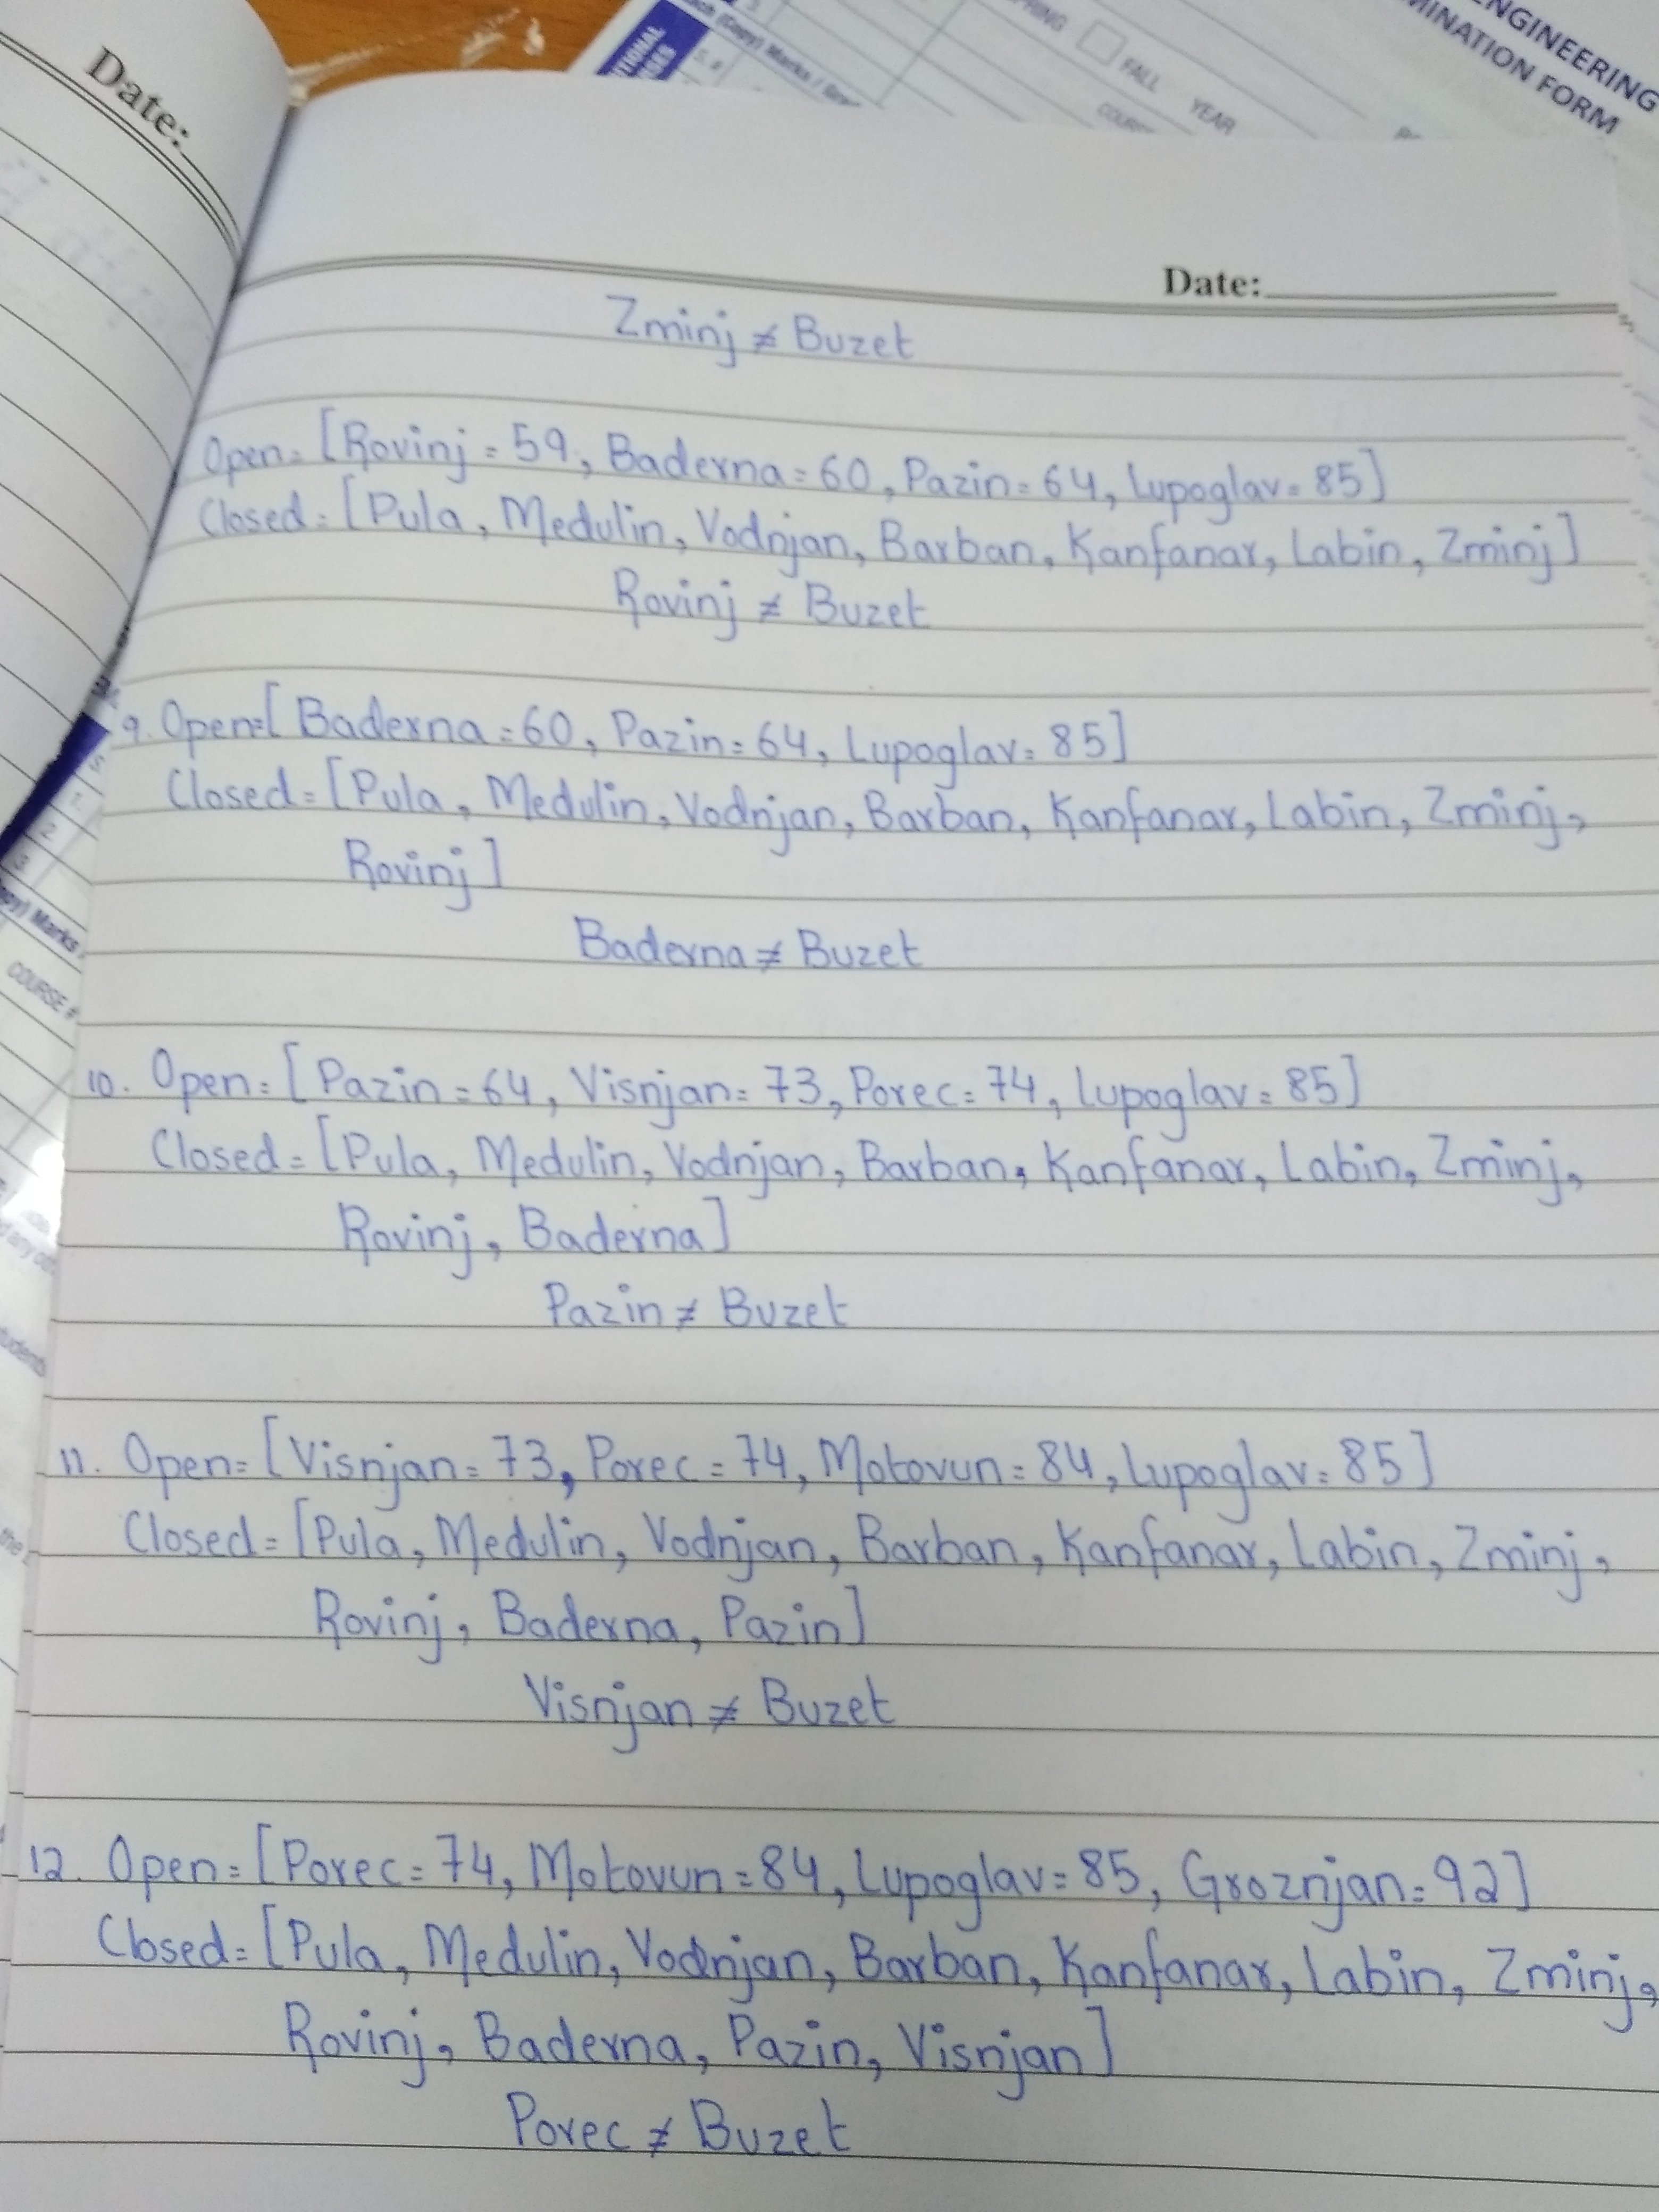 Date:
NGINEERING
MINATION FORM
FALL
YEAR
Date:
Zminj ≠ Buzet
Open = [Rovinj = 59, Baderna = 60, Pazin = 64, Lupoglav = 85]
Closed = [Pula, Medulin, Vodnjan, Barban, Kanfanar, Labin, Zminj]
Rovinj ≠ Buzet
9. Open=[Baderna = 60, Pazin = 64, Lupoglav = 85]
Closed = [Pula, Medulin, Vodnjan, Barban, Kanfanar, Labin, Zminj,
Rovinj]
Baderna ≠ Buzet
10. Open = [Pazin = 64, Visnjan = 73, Porec = 74, Lupoglav = 85]
Closed = [Pula, Medulin, Vodnjan, Barban, Kanfanar, Labin, Zminj,
Rovinj, Baderna]
Pazin ≠ Buzet
11. Open = [Visnjan = 73, Porec = 74, Motovun = 84, Lupoglav = 85]
Closed = [Pula, Medulin, Vodnjan, Barban, Kanfanar, Labin, Zminj,
Rovinj, Baderna, Pazin]
Visnjan ≠ Buzet
12. Open = [Porec = 74, Motovun = 84, Lupoglav = 85, Groznjan = 92]
Closed = [Pula, Medulin, Vodnjan, Barban, Kanfanar, Labin, Zminj,
Rovinj, Baderna, Pazin, Visnjan]
Porec ≠ Buzet
Marks
COURSE #